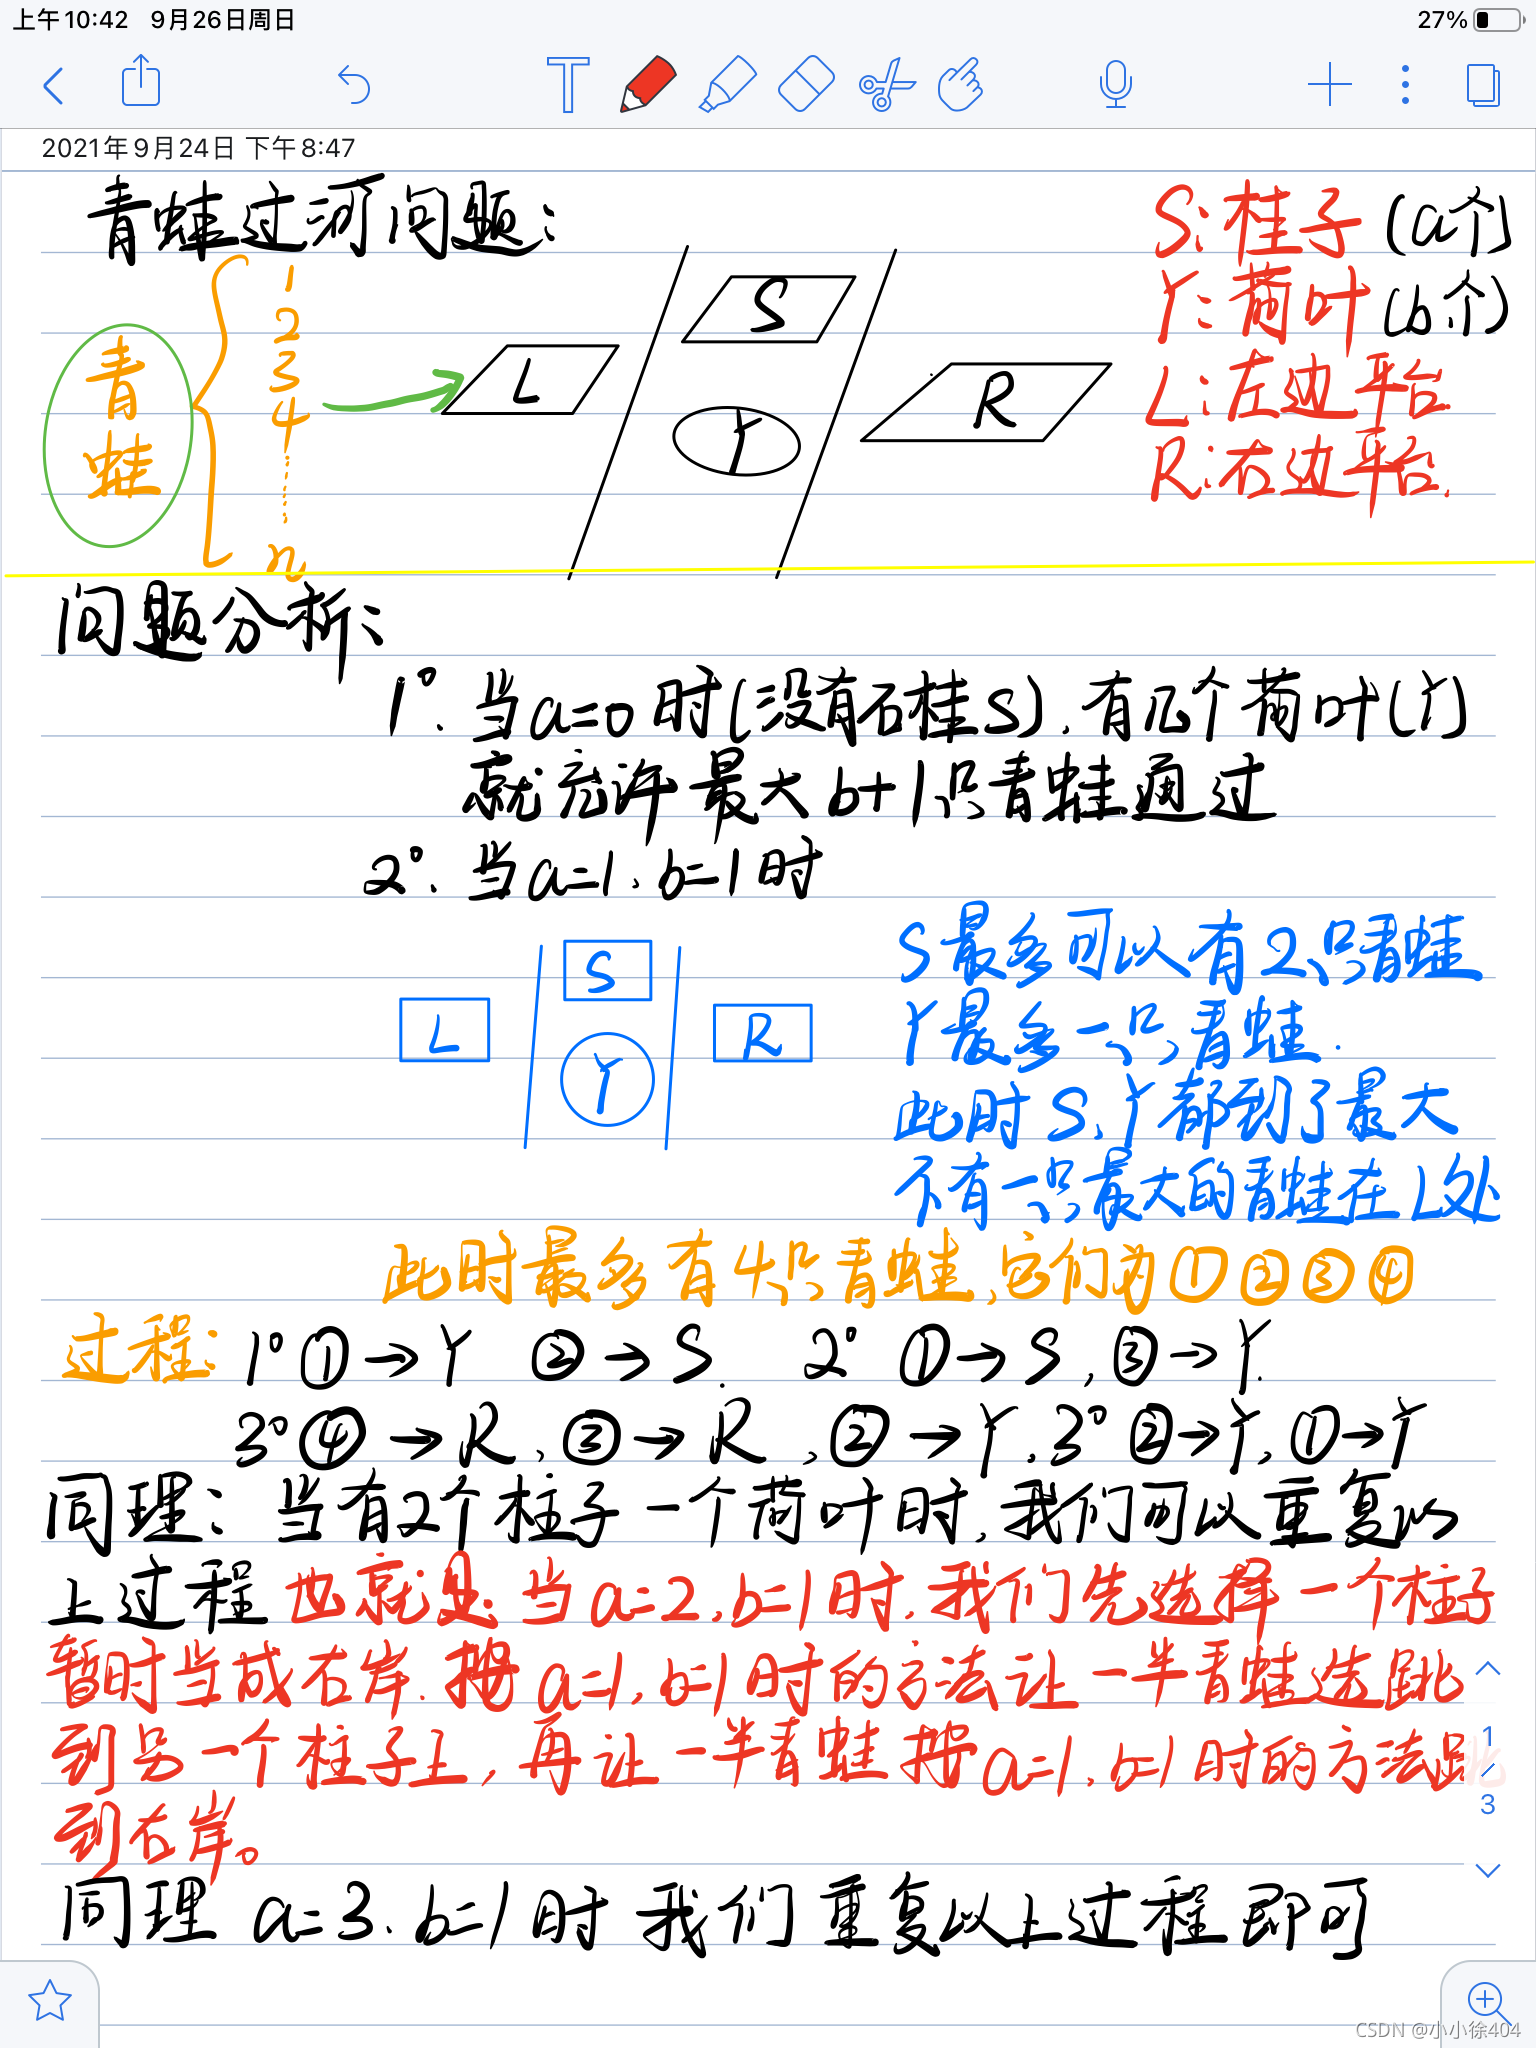 上午10:42 9月26日周日 27%
2021年9月24日 下午8:47
青蛙过河问题:
青蛙
1
2
3
4
n
L
S
Y
R
S:柱子(a个)
Y:荷叶(b个)
L:左边平台
R:右边平台.
问题分析:
1°.当a=0时(没有石柱S),有几个荷叶(Y)
就允许最大b+1只青蛙通过
2°.当a=1、b=1时
L
S
Y
R
S最多可以有2只青蛙
Y最多一只青蛙.
此时S、Y都到了最大
不有一只最大的青蛙在L处
此时最多有4只青蛙,它们为①②③④
过程: 1°①→Y ②→S. 2°①→S,③→Y.
3°④→R,③→R,②→Y,3°②→Y,①→Y
同理:当有2个柱子一个荷叶时,我们可以重复以
上过程 也就是:当a=2,b=1时,我们先选择一个柱子
暂时当成右岸.按a=1,b=1时的方法让一半青蛙先跳
到另一个柱子上,再让一半青蛙按a=1、b=1时的方法跳
到右岸。
同理 a=3、b=1时 我们重复以上过程即可
1
3
CSDN @小小徐404